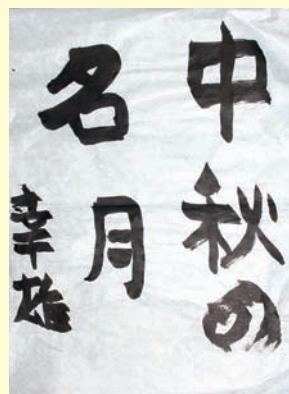 中秋の
名月
幸雄